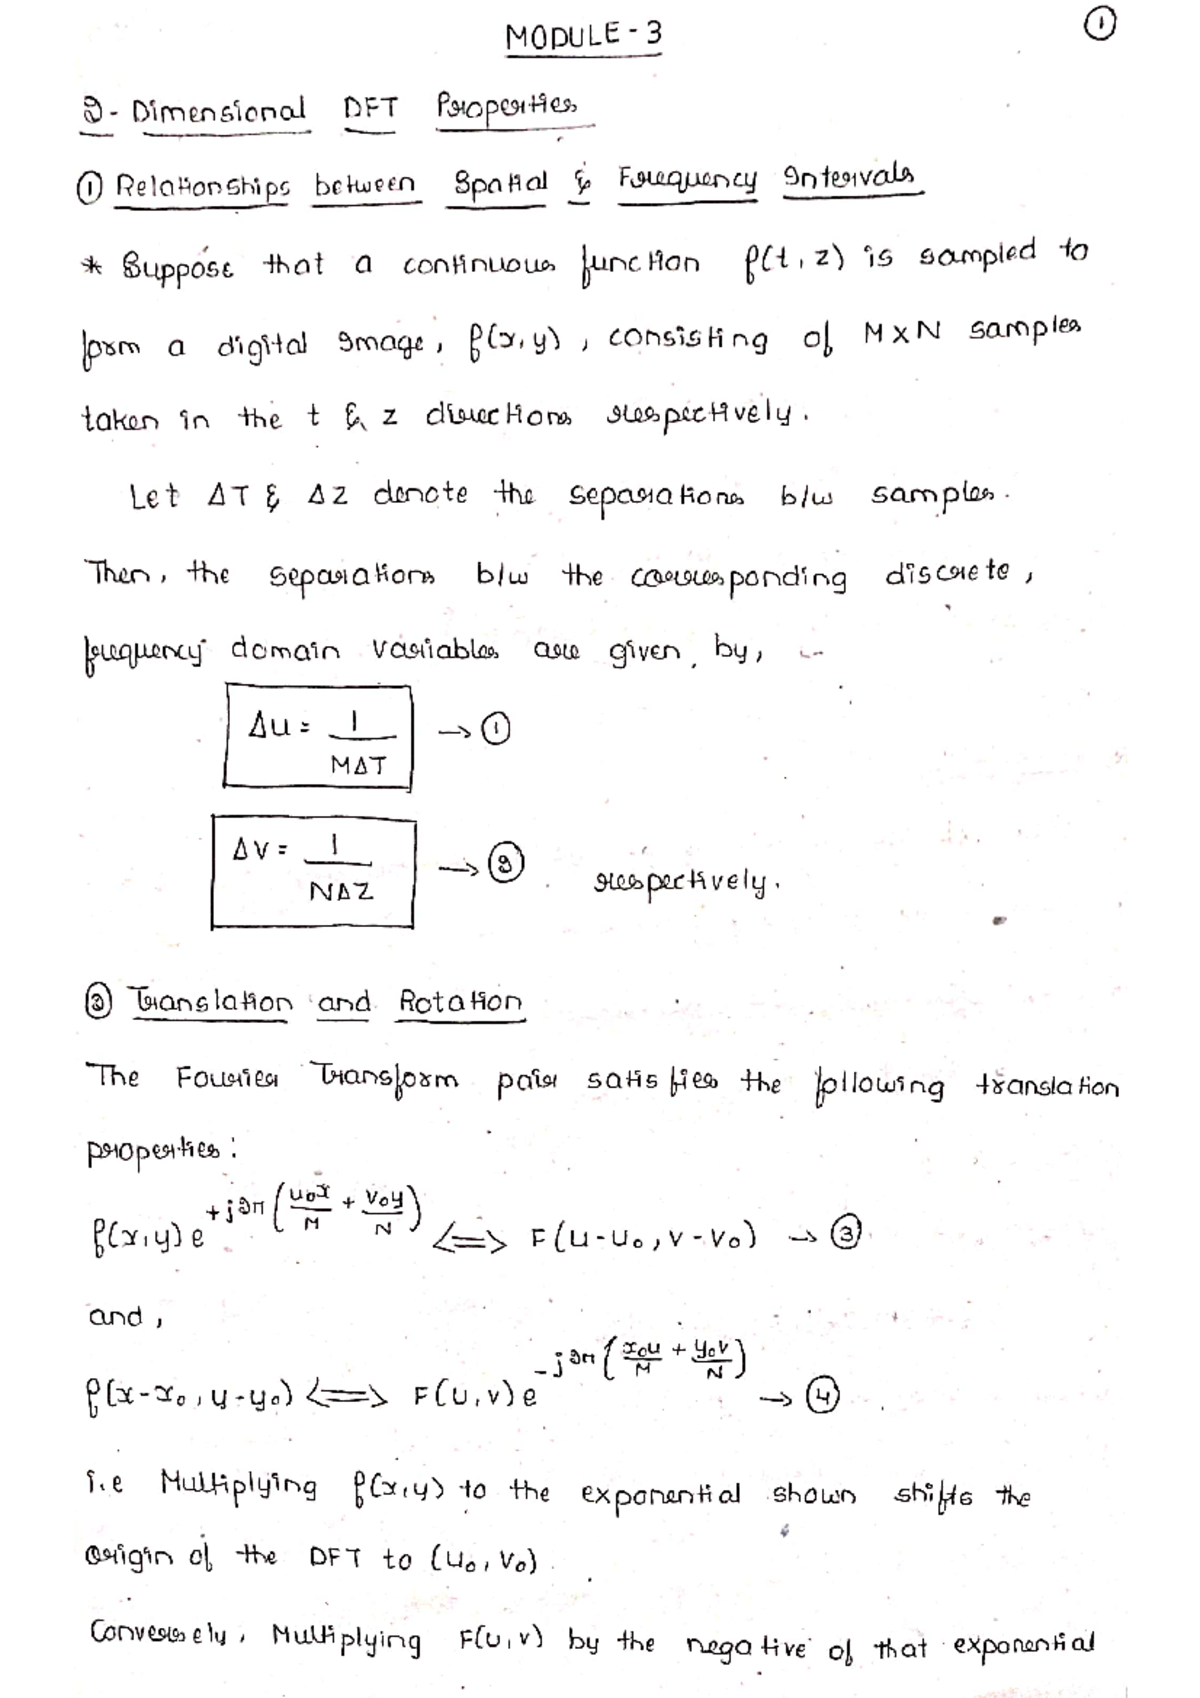 MODULE - 3
①
2 - Dimensional DFT Properties
① Relationships between Spatial & Frequency Intervals
* Suppose that a continuous function f(t, z) is sampled to
form a digital Image, f(x,y), consisting of M×N samples
taken in the t & z directions respectively.
Let ΔT & ΔZ denote the separations b/w samples.
Then, the separations b/w the corresponding discrete,
frequency domain variables are given by,
Δu = 1/MΔT → ①
Δv = 1/NΔZ → ② respectively.
② Translation and Rotation
The Fourier Transform pair satisfies the following translation
properties:
f(x,y) e^{+j2π(u₀x/M + v₀y/N)} <=> F(u-u₀, v-v₀) → ③
and,
f(x-x₀, y-y₀) <=> F(u,v) e^{-j2π(x₀u/M + y₀v/N)} → ④
i.e Multiplying f(x,y) to the exponential shown shifts the
Origin of the DFT to (u₀, v₀).
Conversely, Multiplying F(u,v) by the negative of that exponential